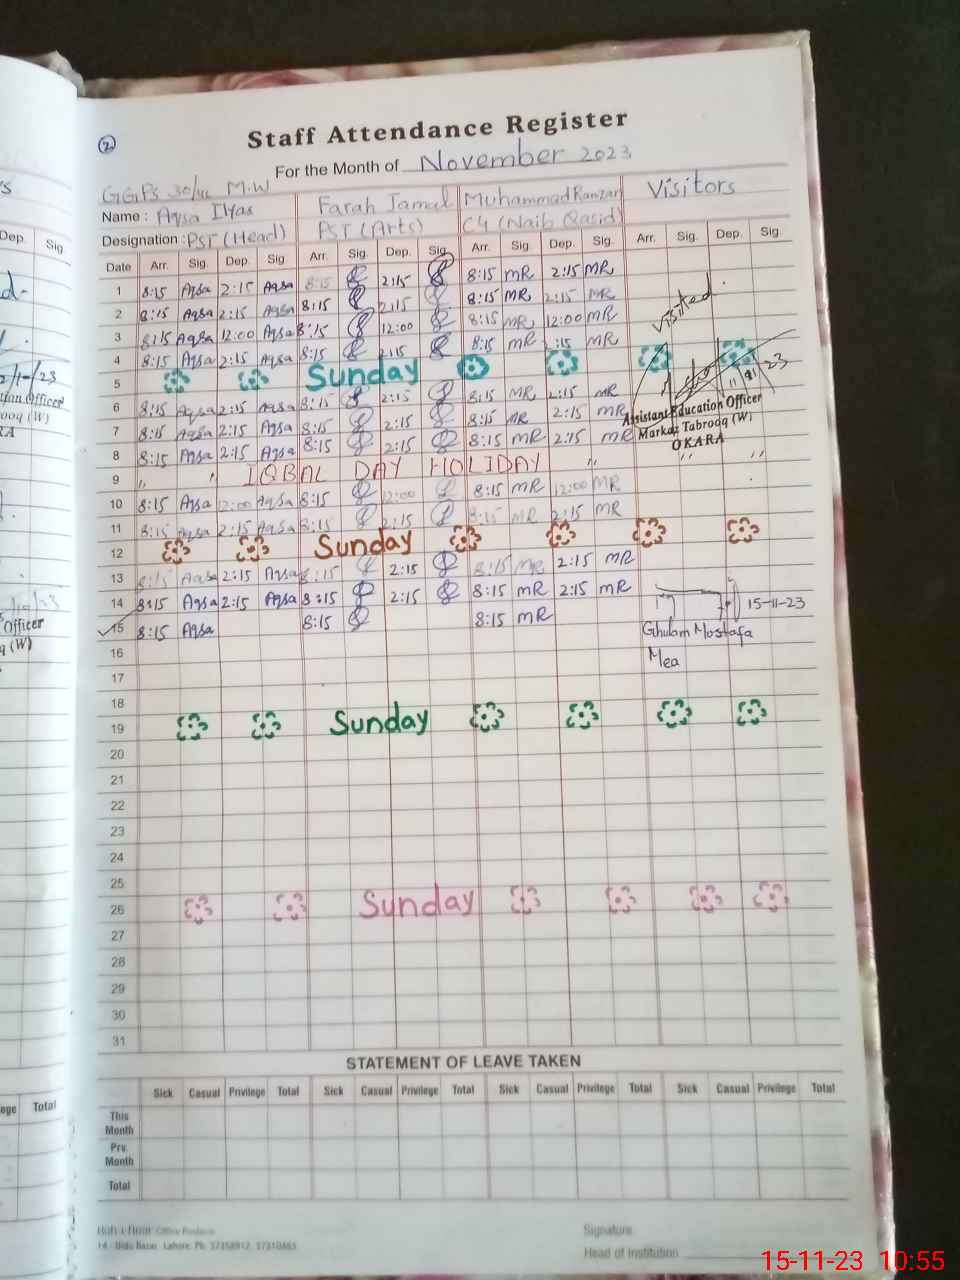 ②
Staff Attendance Register
For the Month of November 2023
GGPS 30/4L M.W
Name : Aqsa Ilyas Farah Jamal Muhammad Ramzan Visitors
Designation : PST (Head) PST (Arts) C4 (Naib Qasid)
Date Arr. Sig. Dep. Sig Arr. Sig. Dep. Sig. Arr. Sig. Dep. Sig. Arr. Sig. Dep. Sig.
1 8:15 Aqsa 2:15 Aqsa 8:15 2:15 8:15 MR 2:15 MR
2 8:15 Aqsa 2:15 Aqsa 8:15 2:15 8:15 MR 2:15 MR
3 8:15 Aqsa 12:00 Aqsa 8:15 12:00 8:15 MR 12:00 MR Visited.
4 8:15 Aqsa 2:15 Aqsa 8:15 2:15 8:15 MR 2:15 MR
5 Sunday
6 8:15 Aqsa 2:15 Aqsa 8:15 2:15 8:15 MR 2:15 MR
7 8:15 Aqsa 2:15 Aqsa 8:15 2:15 8:15 MR 2:15 MR
8 8:15 Aqsa 2:15 Aqsa 8:15 2:15 8:15 MR 2:15 MR
Assistant Education Officer
Markaz Tabrooq (W)
OKARA
9 " " IQBAL DAY HOLIDAY " " "
10 8:15 Aqsa 12:00 Aqsa 8:15 12:00 8:15 MR 12:00 MR
11 8:15 Aqsa 2:15 Aqsa 8:15 2:15 8:15 MR 2:15 MR
12 Sunday
13 8:15 Aqsa 2:15 Aqsa 8:15 2:15 8:15 MR 2:15 MR
14 8:15 Aqsa 2:15 Aqsa 8:15 2:15 8:15 MR 2:15 MR 15-11-23
15 8:15 Aqsa 8:15 8:15 MR Ghulam Mostafa
16 Mea
17
18
19 Sunday
20
21
22
23
24
25
26 Sunday
27
28
29
30
31
STATEMENT OF LEAVE TAKEN
Sick Casual Privilege Total Sick Casual Privilege Total Sick Casual Privilege Total Sick Casual Privilege Total
This Month
Prv. Month
Total
Signature
Head of Institution
15-11-23 10:55